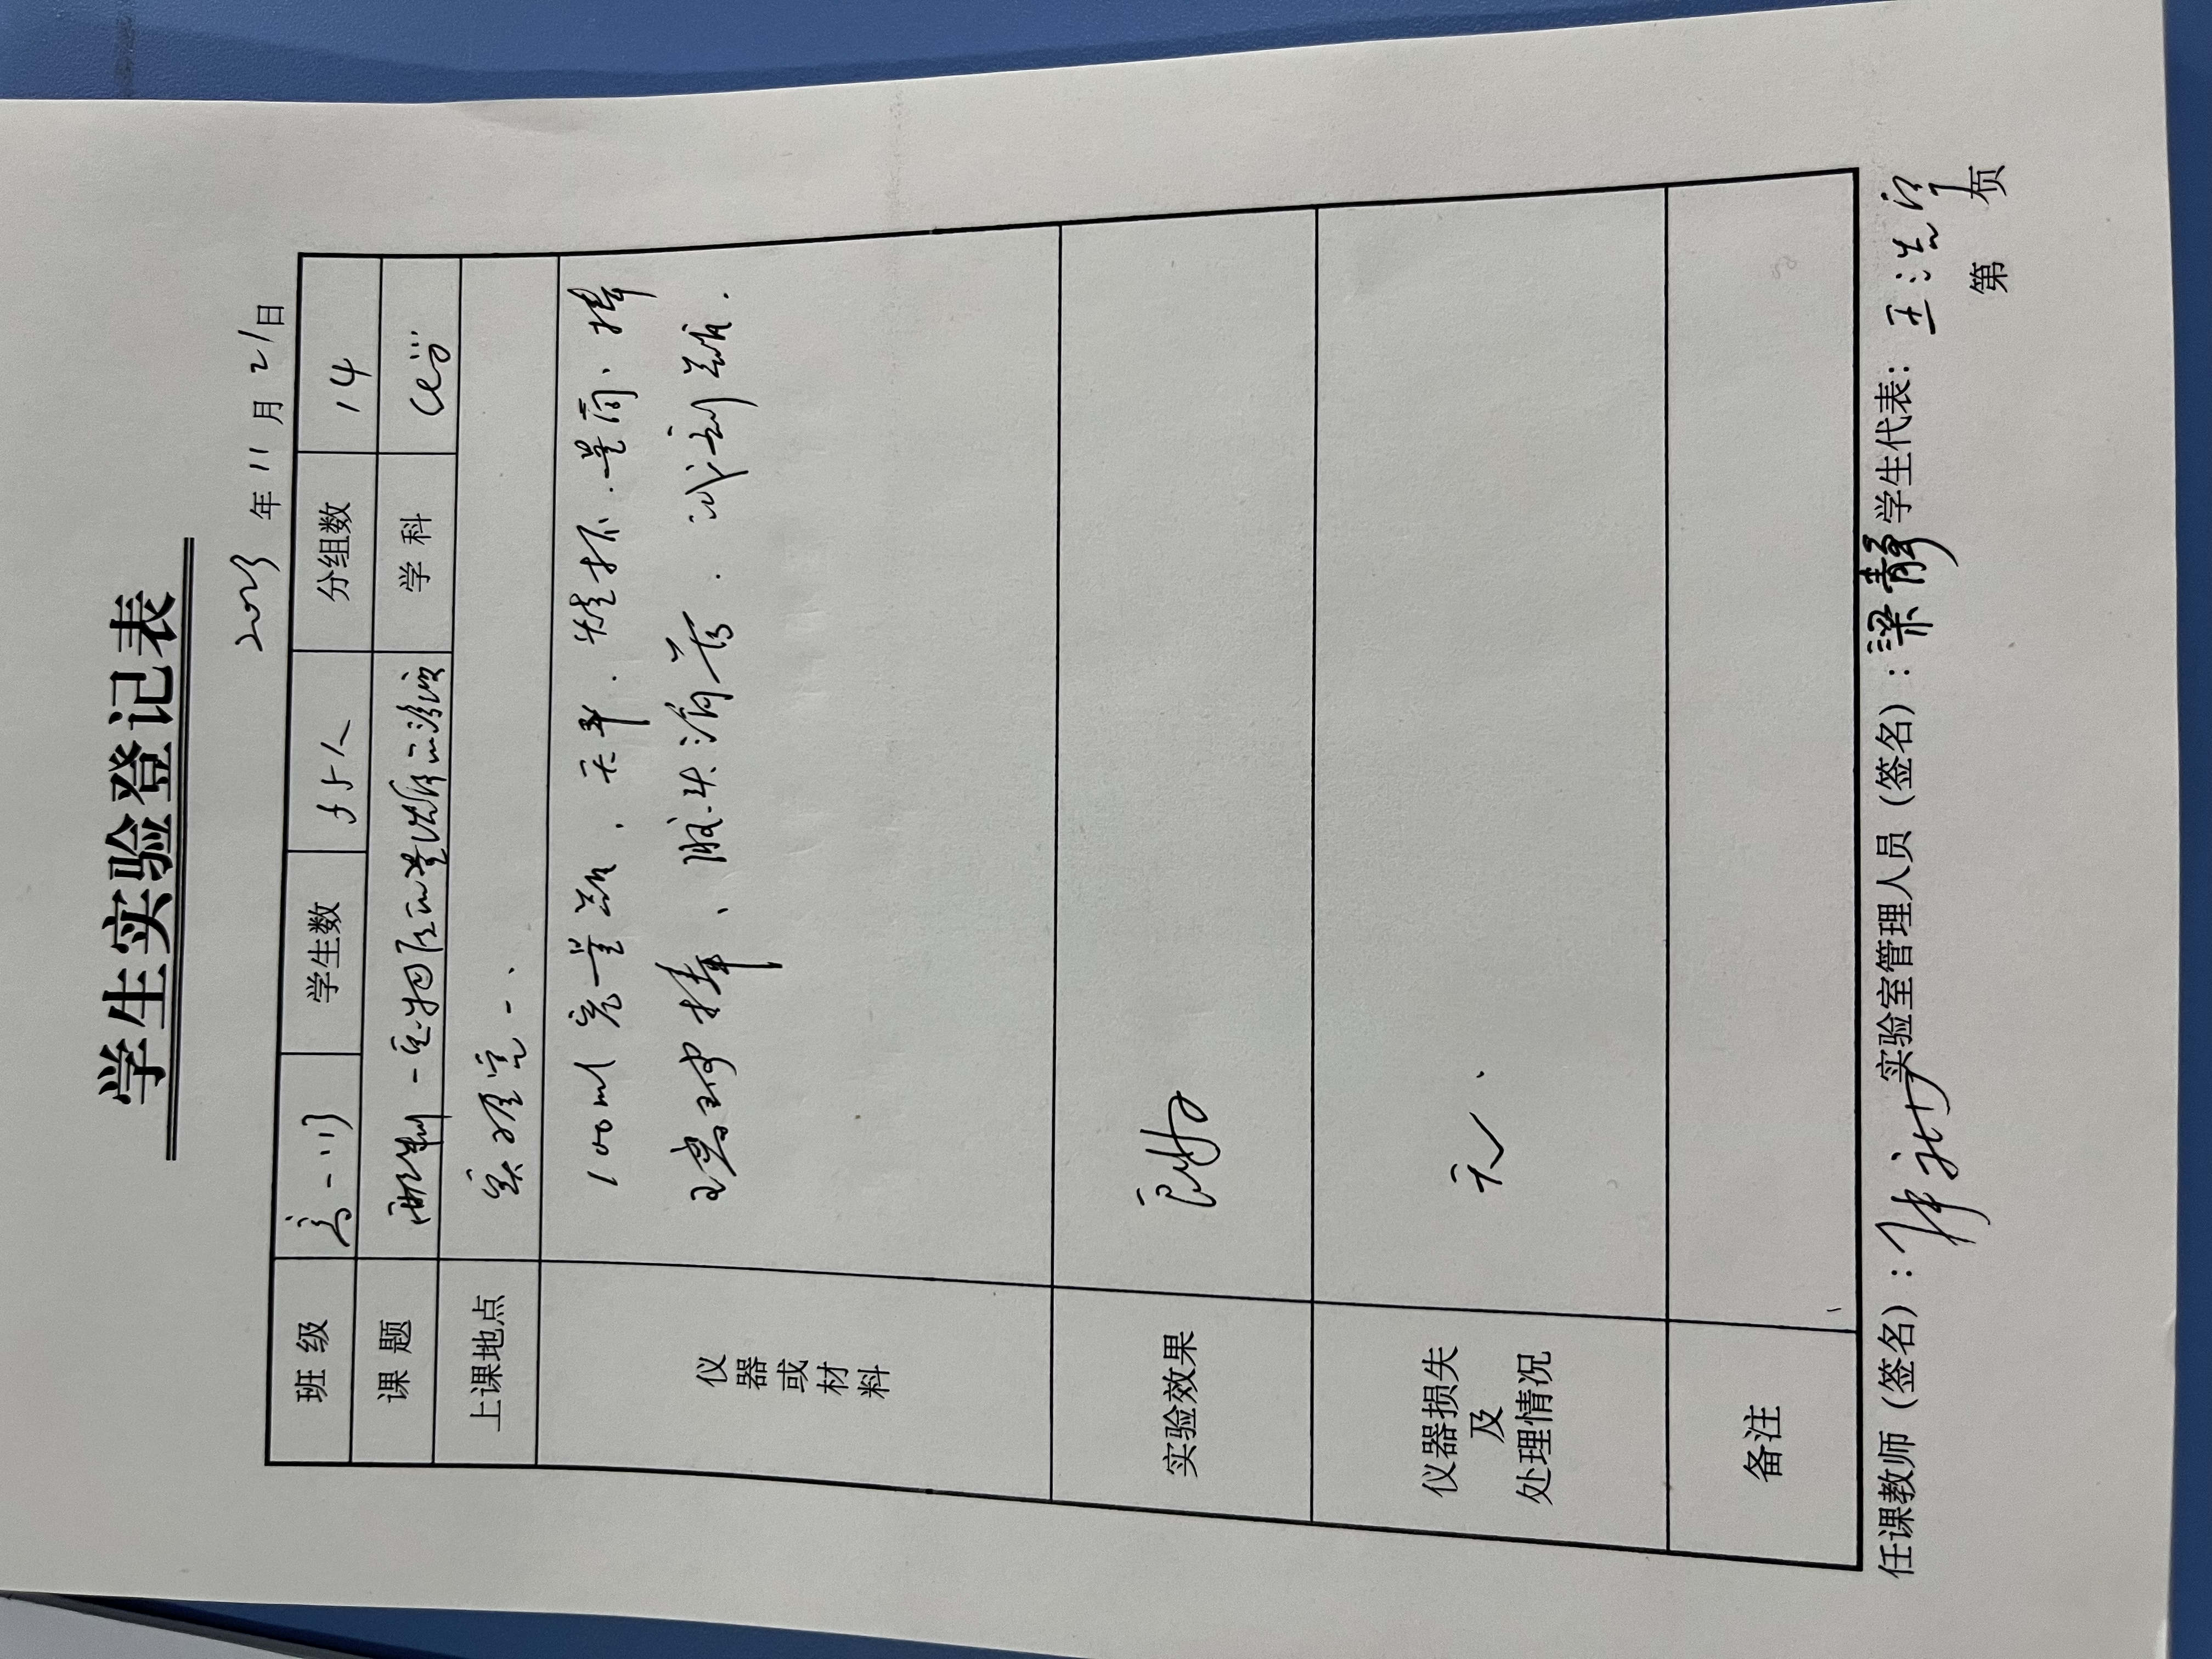 学生实验登记表
2023 年 11 月 21 日
班 级 高一 学生数 55人 分组数 14
课 题 配制一定物质的量浓度的溶液 学 科 化学
上课地点 实验室一、
仪器或材料 100ml 容量瓶、天平、烧杯、量筒、
玻璃棒、胶头滴管、试剂瓶.
实验效果 良好
仪器损失及处理情况 无.
备注
任课教师（签名）: 实验室管理人员（签名）: 梁静 学生代表: 王浩
第 页